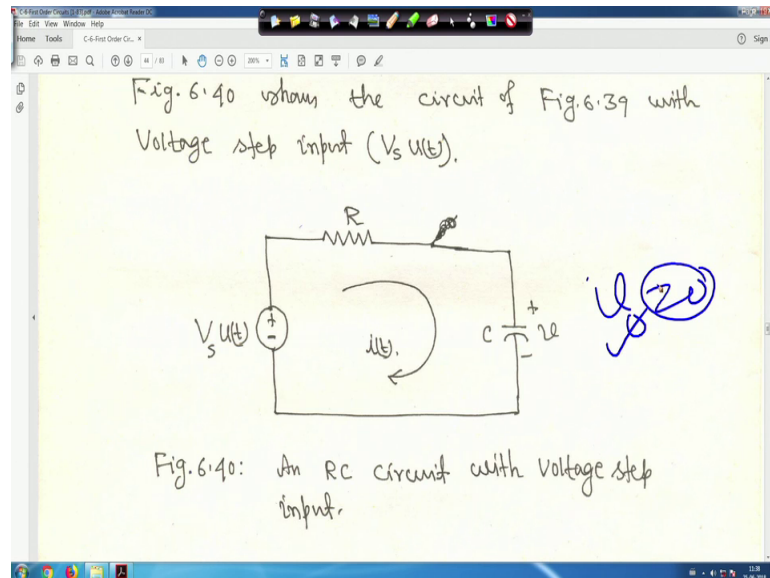 C-6-First Order Circuits [1-83].pdf - Adobe Acrobat Reader DC
File Edit View Window Help
Home Tools C-6-First Order Cir... × Sign
44 / 83 200%
Fig. 6.40 shows the circuit of Fig. 6.39 with
Voltage step input (Vs u(t)).
R
Vs u(t) + -
i(t).
C + v -
Fig. 6.40: An RC circuit with Voltage step
input.
11:38